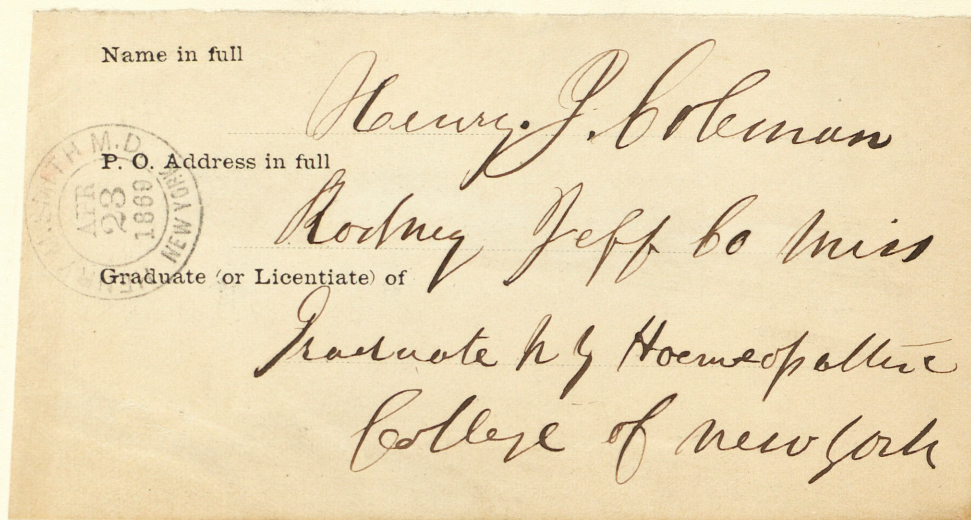 Name in full
Henry. J. Coleman
P. O. Address in full
Rodney Jeff Co Miss
Graduate (or Licentiate) of
Graduate N Y Hoemeopathic
College of new york
HENRY M. SMITH M.D. NEW YORK
APR
23
1869